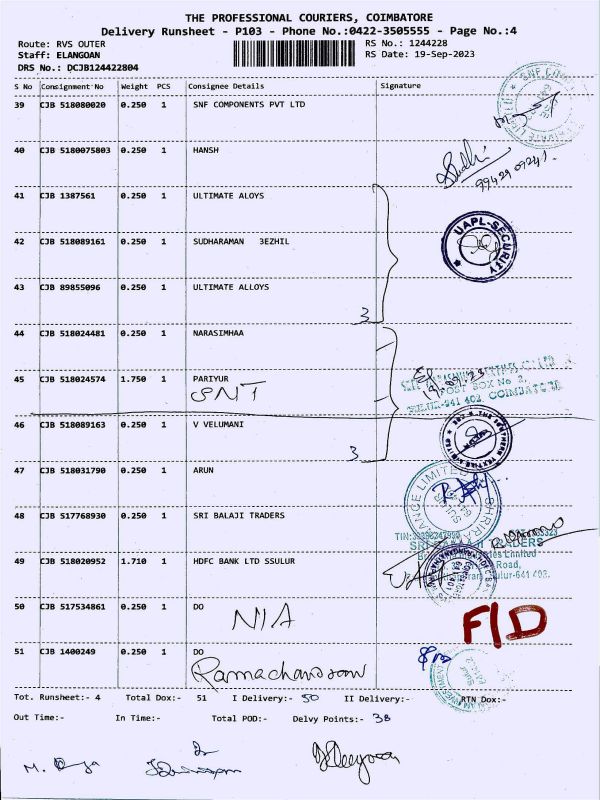 THE PROFESSIONAL COURIERS, COIMBATORE
Delivery Runsheet - P103 - Phone No.:0422-3505555 - Page No.:4
Route: RVS OUTER RS No.: 1244228
Staff: ELANGOAN RS Date: 19-Sep-2023
DRS No.: DCJB124422804
S No Consignment No Weight PCS Consignee Details Signature
39 CJB 518080020 0.250 1 SNF COMPONENTS PVT LTD
40 CJB 5180075803 0.250 1 HANSH
99429 09241.
41 CJB 1387561 0.250 1 ULTIMATE ALOYS
42 CJB 518089161 0.250 1 SUDHARAMAN 3EZHIL
UAPL-SECURITY
43 CJB 89855096 0.250 1 ULTIMATE ALLOYS
3
44 CJB 518024481 0.250 1 NARASIMHAA
45 CJB 518024574 1.750 1 PARIYUR
SNT
POST BOX No 2,
641 402. COIMBATORE
46 CJB 518089163 0.250 1 V VELUMANI
3
47 CJB 518031790 0.250 1 ARUN
48 CJB S17768930 0.250 1 SRI BALAJI TRADERS
49 CJB 518020952 1.710 1 HDFC BANK LTD SSULUR
Road,
Sulur-641 402.
50 CJB 517534861 0.250 1 DO
N/A
F/D
51 CJB 1400249 0.250 1 DO
Ramachandran
Tot. Runsheet:- 4 Total Dox:- 51 I Delivery:- 50 II Delivery:- RTN Dox:-
Out Time:- In Time:- Total POD:- Delvy Points:- 38